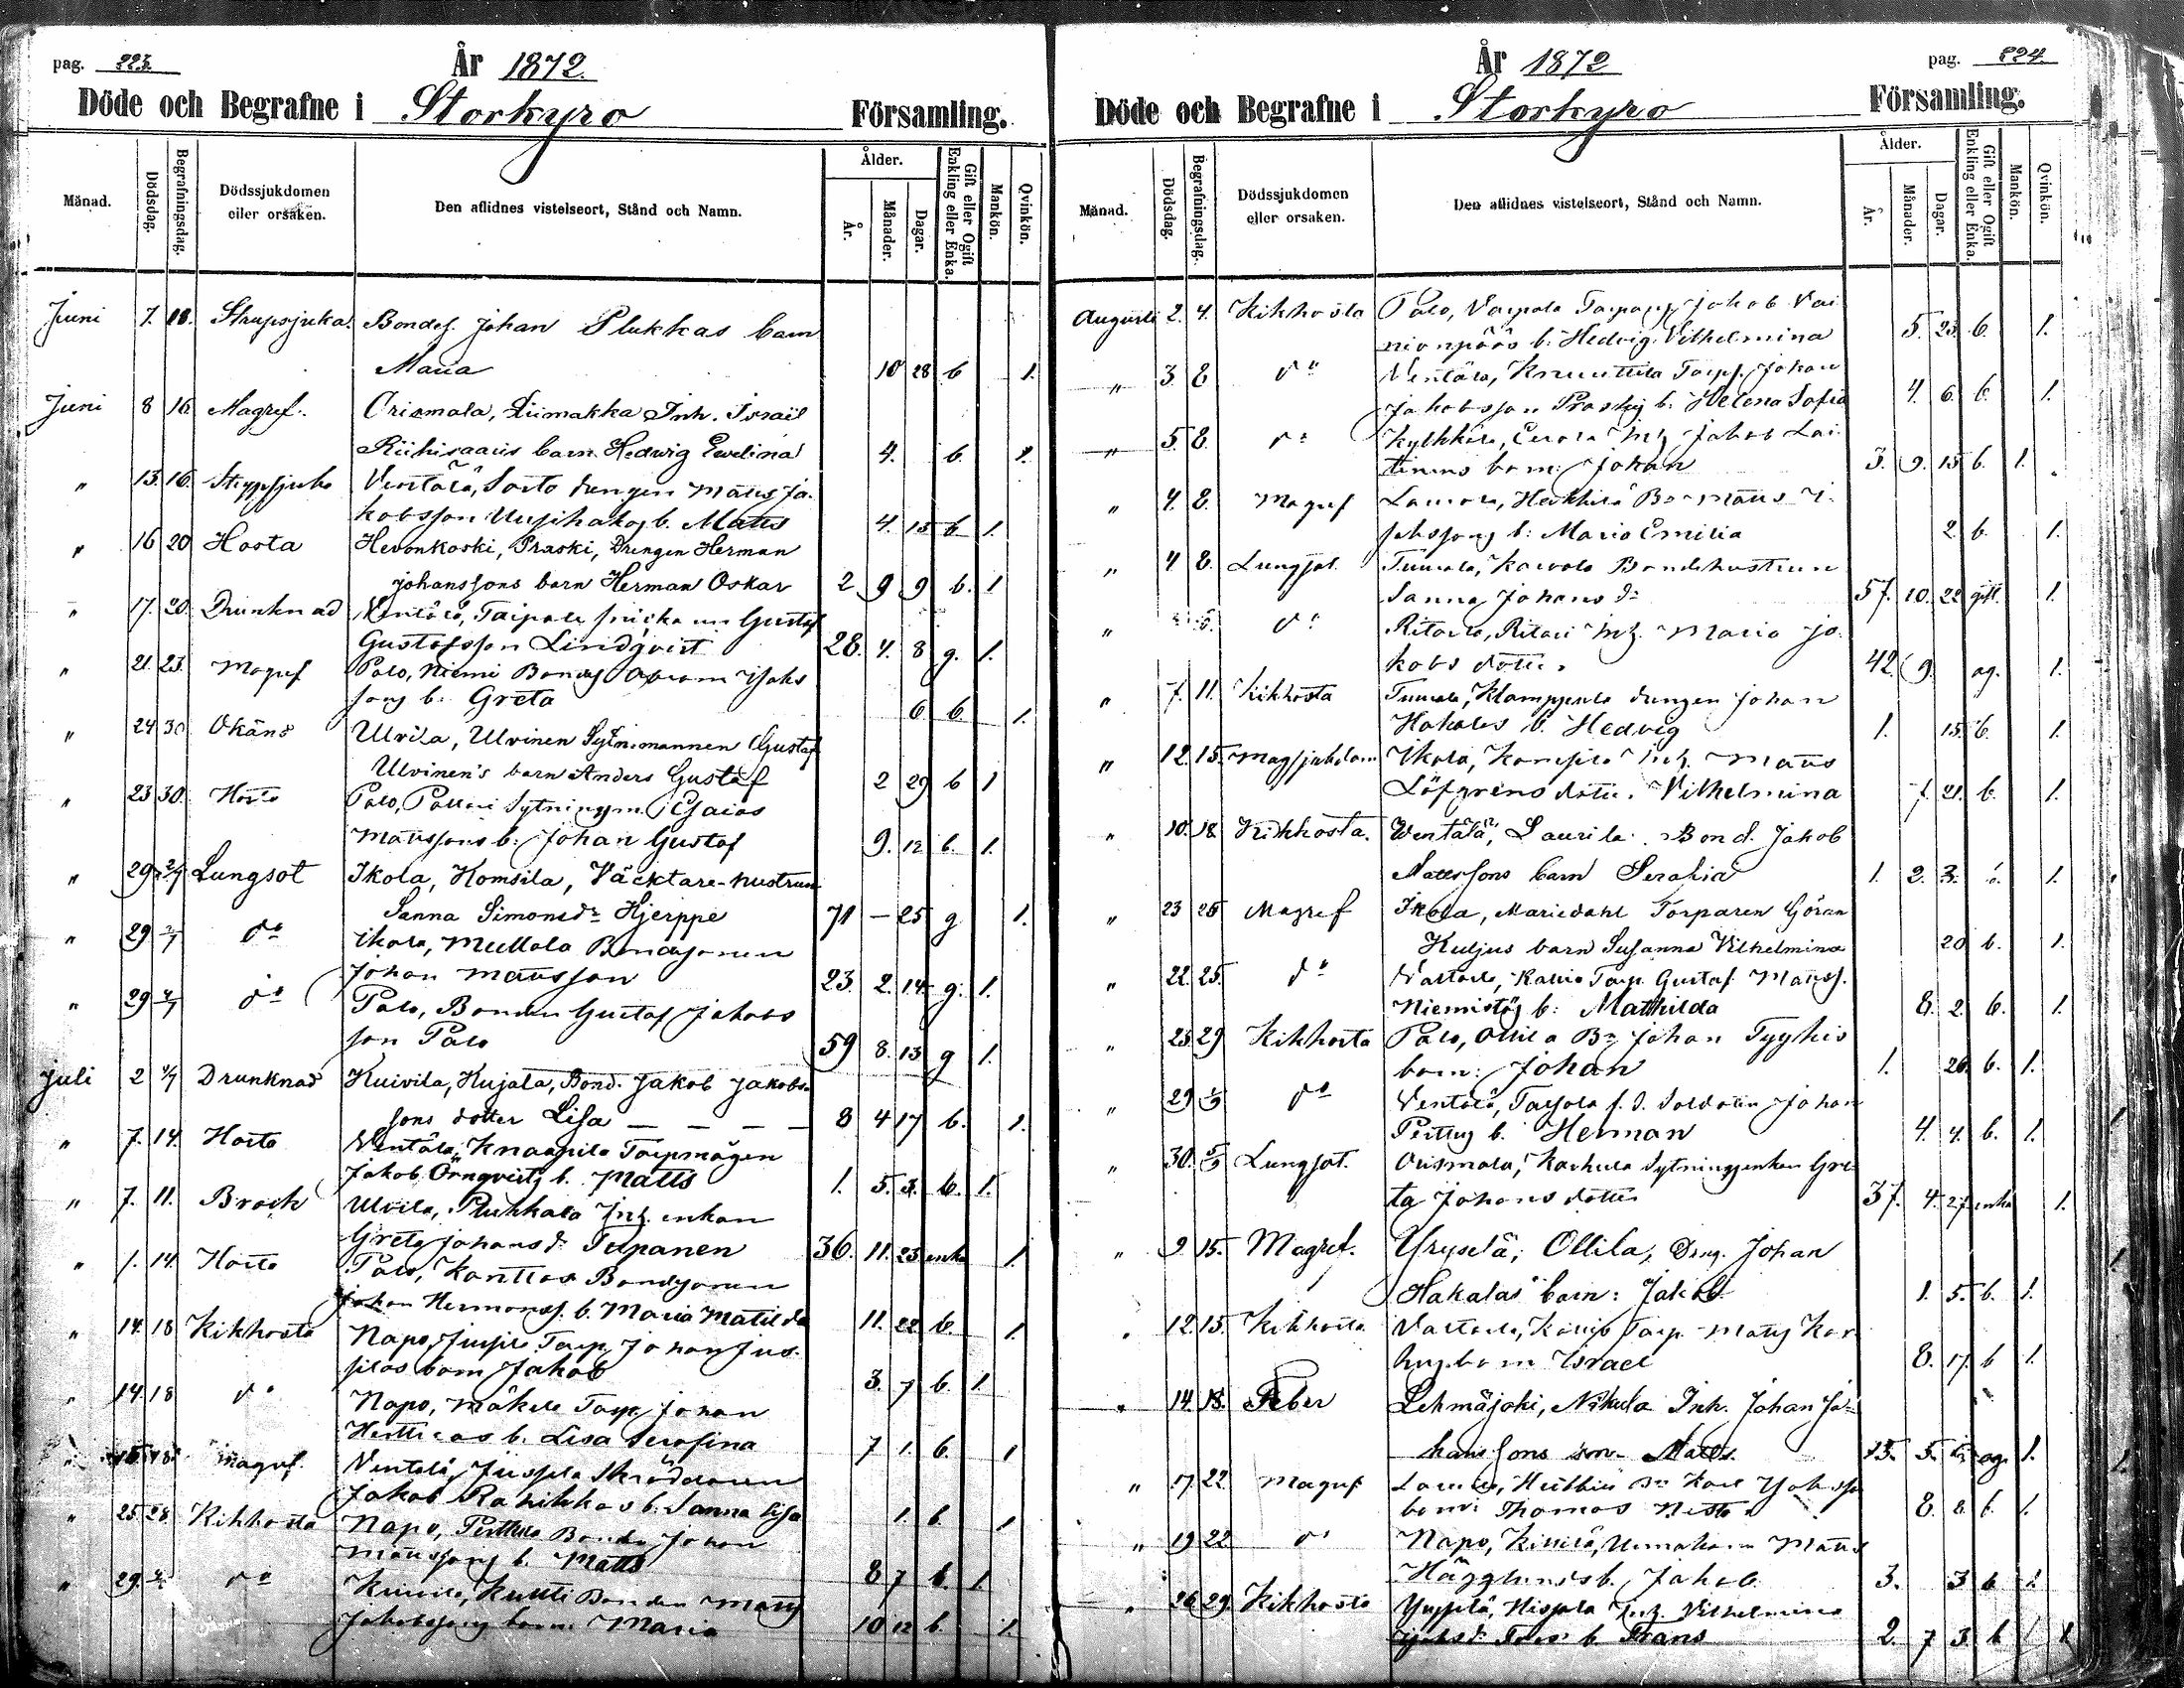 pag. 223
År 1872.
Döde och Begrafne i Storkyro Församling.
Månad.
Dödsdag.
Begrafningsdag.
Dödssjukdomen eller orsaken.
Den aflidnes vistelseort, Stånd och Namn.
Ålder.
År.
Månader.
Dagar.
Gift eller Ogift Enkling eller Enka.
Mankön.
Qvinkön.
Juni 7. 18. Strupsjuka. Bondes. Johan Plukkas barn
Maria 10 28 b 1.
Juni 8 16 Magref. Orismala, Liimakka Inh. Israel
Riihisaaris barn Hedwig Ewelina 4. b. 1.
" 13. 16. Strypsjuka Ventälä, Sorto drengen Matts Ja-
kobsson Uusihakas b. Matts 4. 15 b 1.
" 16 20 Hosta Hevonkoski, Praski, Drengen Herman
Johanssons barn Herman Oskar 2 9 9 b. 1
" 17. 20. Drunknad Ventälä, Taipale Gustaf
Gustafsson Lindqvist 28. 4. 8 g. 1.
" 21. 23. Magref Palo, Niemi Abram Isaks
sons b. Greta 6 b. 1.
" 24 30 Okänd Ulvila, Ulvinen Sytnismannen Gustaf
Ulvinen's barn Anders Gustaf 2 29 b 1
" 23 30. Hosta Palo, Pollari Sytningsm. Esaias
Mattssons b. Johan Gustaf 9. 12 b. 1.
" 29 2/7 Lungsot Ikola, Komsila, Väcktare-hustrun
Sanna Simonsdr Hjerppe 71 — 25 g 1.
" 29 do Ikola, Mullola Bondesonen
Johan Mattsson 23. 2. 14 g. 1.
" 29 do Palo, Bonden Gustaf Jakobs
son Palo 59 8. 13 g 1.
Juli 2 4/7 Drunknad Kuivila, Kujala, Bond. Jakob Jakobs-
sons dotter Lisa — — — — 8 4 17 b. 1.
" 7. 14. Hosta Ventälä, Knaapila Torpmågen
Jakob Örnqvists b. Matts 1. 5. 3. b. 1.
" 7. 11. Bråck Ulvila, Plukkala Inh. enkan
Greta Johansdr Tepanen 36. 11. 23 enka 1.
" 1. 14. Hosta Palo, Konttas Bondesonen
Johan Hermanss. b. Maria Matilda 11. 22 b. 1.
" 14. 18 Kikhosta Napo, Juspila Torp. Johan Jus-
pilas barn Jakob 3. 7 b. 1.
" 14. 18 do Napo, Mäkelä Torp. Johan
Herttuas b. Lisa Serafina 7 1. b. 1
" 15. 18 Magref. Ventälä, Juspila Skräddaren
Jakob Ranikkas b. Sanna Lisa 1. b. 1
" 25 28. Kikhosta Napo, Perttula Bonden Johan
Mattssons b. Matts 8 7 b. 1.
" 29. do Kuivila, Kultti Bonden Matts
Jakobssons barn Maria 10 12 b. 1.
pag. 224.
År 1872
Döde och Begrafne i Storkyro Församling.
Månad.
Dödsdag.
Begrafningsdag.
Dödssjukdomen eller orsaken.
Den aflidnes vistelseort, Stånd och Namn.
Ålder.
År.
Månader.
Dagar.
Gift eller Ogift Enkling eller Enka.
Mankön.
Qvinkön.
Augusti 2. 4. Kikhosta Palo, Varpala Torpags Jakob Vai
nionpääs b. Hedvig Vilhelmina 5. 23. b. 1.
" 3. 8 do Ventälä, Knuuttila Torpp. Johan
Jakobsson Praskis b. Helena Sofia 4. 6. b. 1.
" 5 8. do Kylkkälä, Eerola Inh. Jakob Lai-
tinens barn: Johan 3. 9. 15 b. 1.
" 4. 8. Magref Laurola, Heikkilä Bo. Matts I-
saksons b: Maria Emilia 2. b. 1.
" 4 8. Lungsot. Tuurala, Kaivola Bondehustrun
Sanna Johansdr 57. 10. 22 gift. 1.
" do Ritaala, Ritari Inh. Maria Ja-
kobs dotter 42 9. og. 1.
" 7. 11. Kikhosta Tuurala, Klamppula drengen Johan
Hakalas b. Hedvig 1. 15. b. 1.
" 12. 15. Magsjukdom Ikola, Kompila Inh. Matts
Löfgrens dotter. Vilhelmina 7. 21. b. 1.
" 10. 18. Kikhosta. Wentälä, Laurila. Bond. Jakob
Mattssons barn Serafia 1. 2. 3. b. 1.
" 23 25 Magref Ikola, Mariedahl Torparen Göran
Kuljus barn Susanna Vilhelmina 20 b. 1.
" 22. 25. do Valtaala, Kallio Torp. Gustaf Matss.
Niemistös b: Mathilda 8. 2. b. 1.
" 25 29 Kikhosta Palo, Ollila Bs Johan Tyykis
barn: Johan 1. 26. b. 1.
" 29 1/9 do Ventälä, Taipola f. d. Soldaten Johan
Perttus b. Herman 4. 4. b. 1.
" 30. 5/9 Lungsot. Orismala, Karhula Sytningsenkan Gre-
ta Johansdotter 37. 4. 27. enka 1.
" 9 15. Magref. Yryselä, Ollila, Dräng. Johan
Hakalas barn: Jakob 1. 5. b. 1.
" 12. 15. Kikhosta Valtaala, Kallio Torp. Matts Kar
hus barn Israel 8. 17. b 1.
" 14. 18. Feber Lehmäjoki, Nikula Inh. Johan Jo-
hanssons son Matts. 15. 5. og. 1.
" 17. 22. Magref Laurola, Heikkilä Bs Karl Isakss.
barn: Thomas Nestor 8. 8. b. 1.
" 19 22 do Napo, Kiikilä, Urmakaren Matts
Hägglunds b. Jakob. 3. 3 b 1.
" 26 29. Kikhosta Yrypelä, Hispala Inh. Vilhelmina
b. Frans 2. 7 3. b 1